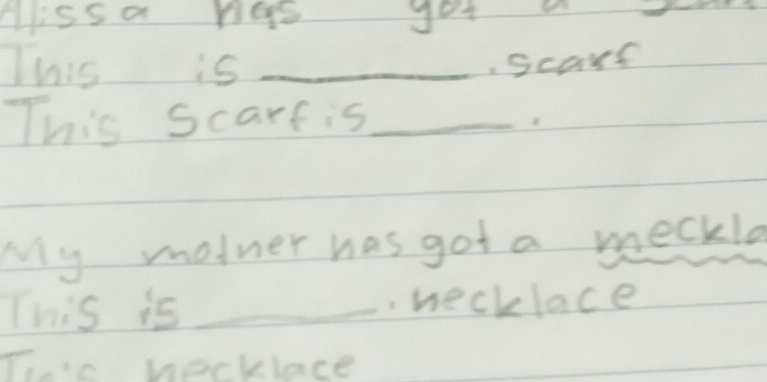 Alissa has got a
This is ________. scarf
This scarf is ______.
My mother has got a meckla
This is ________. necklace
This necklace